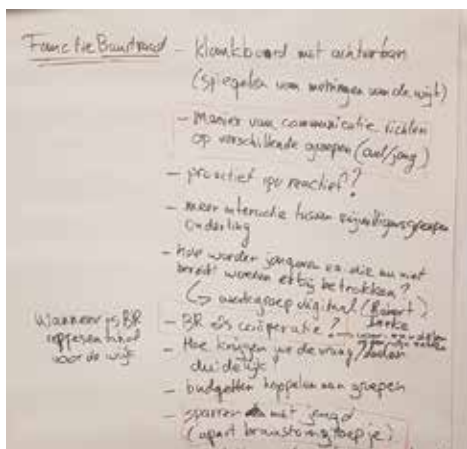 Functie Buurtraad - klankbord met achterban
(spiegelen van meningen van de wijk)
- Manier van communicatie richten
op verschillende groepen (oud/jong)
- proactief ipv reactief?
- meer interactie tussen vrijwilligersgroepen
onderling
- hoe worden jongeren en die nu niet
bereikt worden erbij betrokken?
↳ werkgroep digitaal (Robert)
Wanneer is BR
representatief
voor de wijk
- BR als coöperatie?
- Hoe krijgen we de vraag
duidelijk?
- budgetten koppelen aan groepen
- sparren met jeugd
(apart brainstormgroepje)